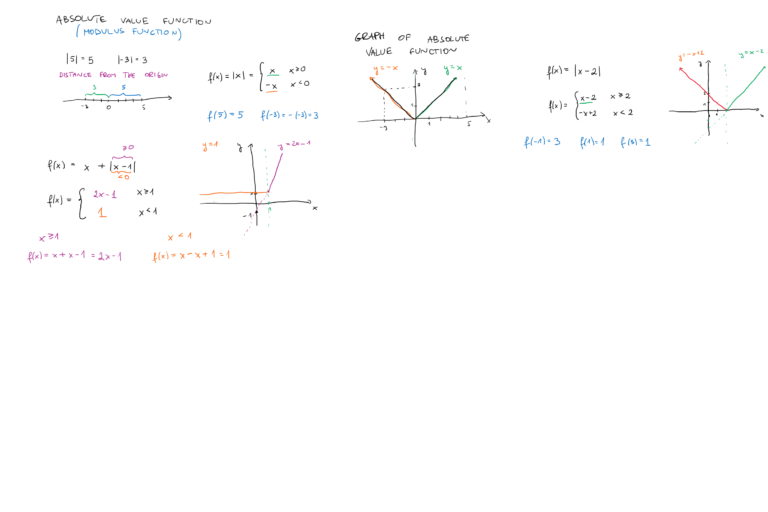 ABSOLUTE VALUE FUNCTION
(MODULUS FUNCTION)
|5| = 5 |-3| = 3
DISTANCE FROM THE ORIGIN
3 5
-3 0 5
f(x) = |x| = { x x≥0
-x x<0
f(5) = 5 f(-3) = -(-3) = 3
GRAPH OF ABSOLUTE
VALUE FUNCTION
y=-x y y=x
3
-3 1 5 x
f(x) = |x-2|
f(x) = { x-2 x≥2
-x+2 x<2
f(-1) = 3 f(1) = 1 f(3) = 1
y=-x+2 y y=x-2
2
x
≥0
f(x) = x + |x-1|
<0
f(x) = { 2x-1 x≥1
1 x<1
y=1 y y=2x-1
-1 x
x≥1 x<1
f(x) = x+x-1 = 2x-1 f(x) = x-x+1 = 1